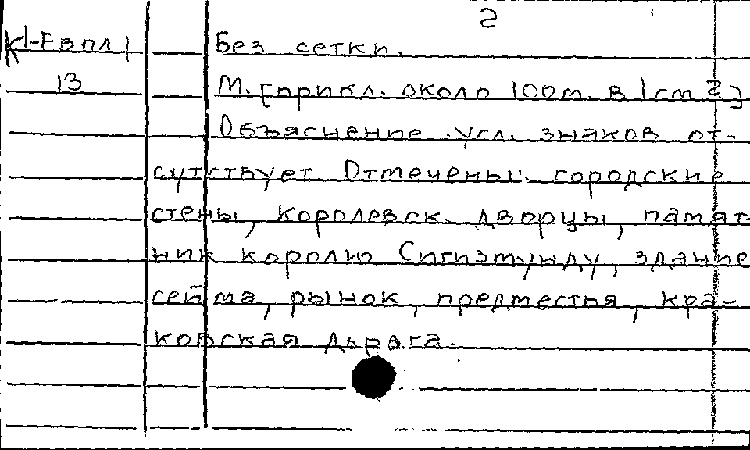 2
К1-Евпл1 Без сетки.
13 М. [прикл. около 100м. в 1см 2]
Объяснение усл. знаков от-
сутствует Отмечены: городские
стены, королевск. дворцы, памят-
ник королю Сигизмунду, здание
сейма, рынок, предместья, кра-
ковская дорога.